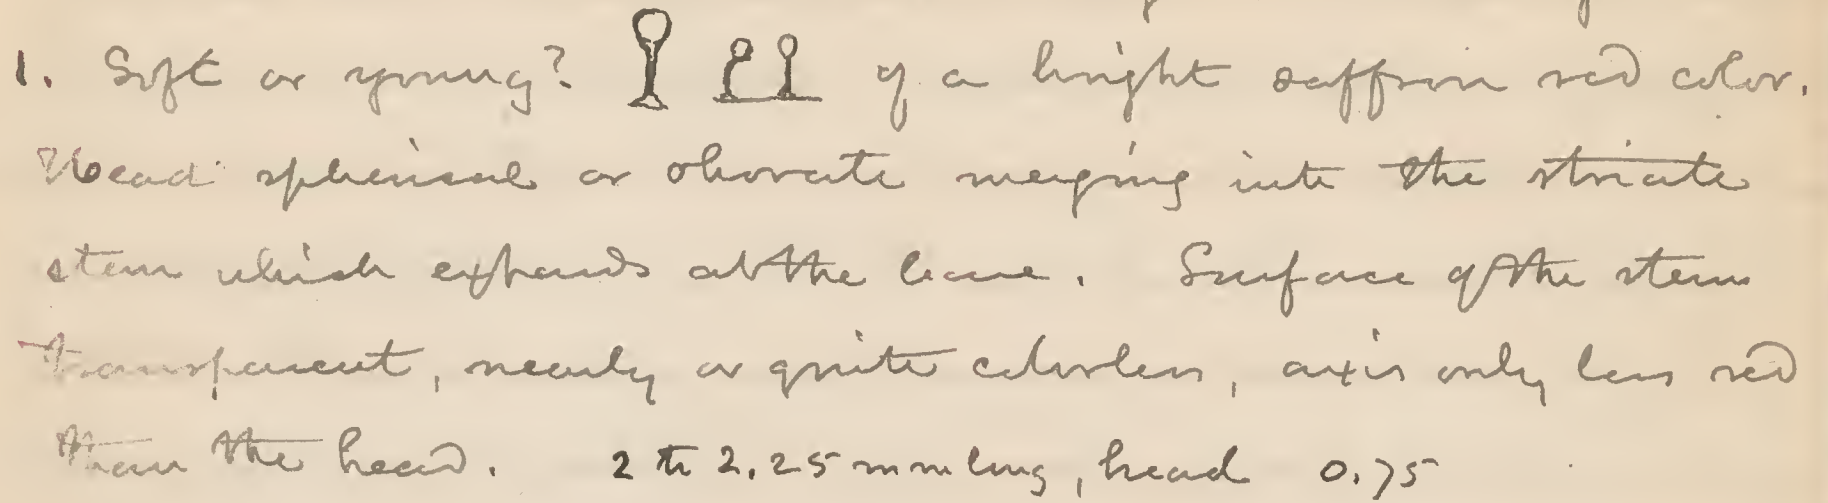 1. Soft or young? of a bright saffron red color.
Head spherical or obovate merging into the striate
stem which expands at the base. Surface of the stem
transparent, nearly or quite colorless, axis only less red
than the head. 2 to 2.25 mm long, head 0.75